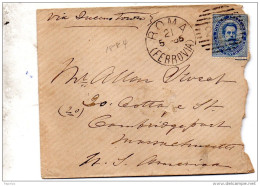 via Queenstown
ROMA
(FERROVIA)
21
Mr Allen Street
Co. Cottage St
Cambridgeport
Massachusetts
U. S. America